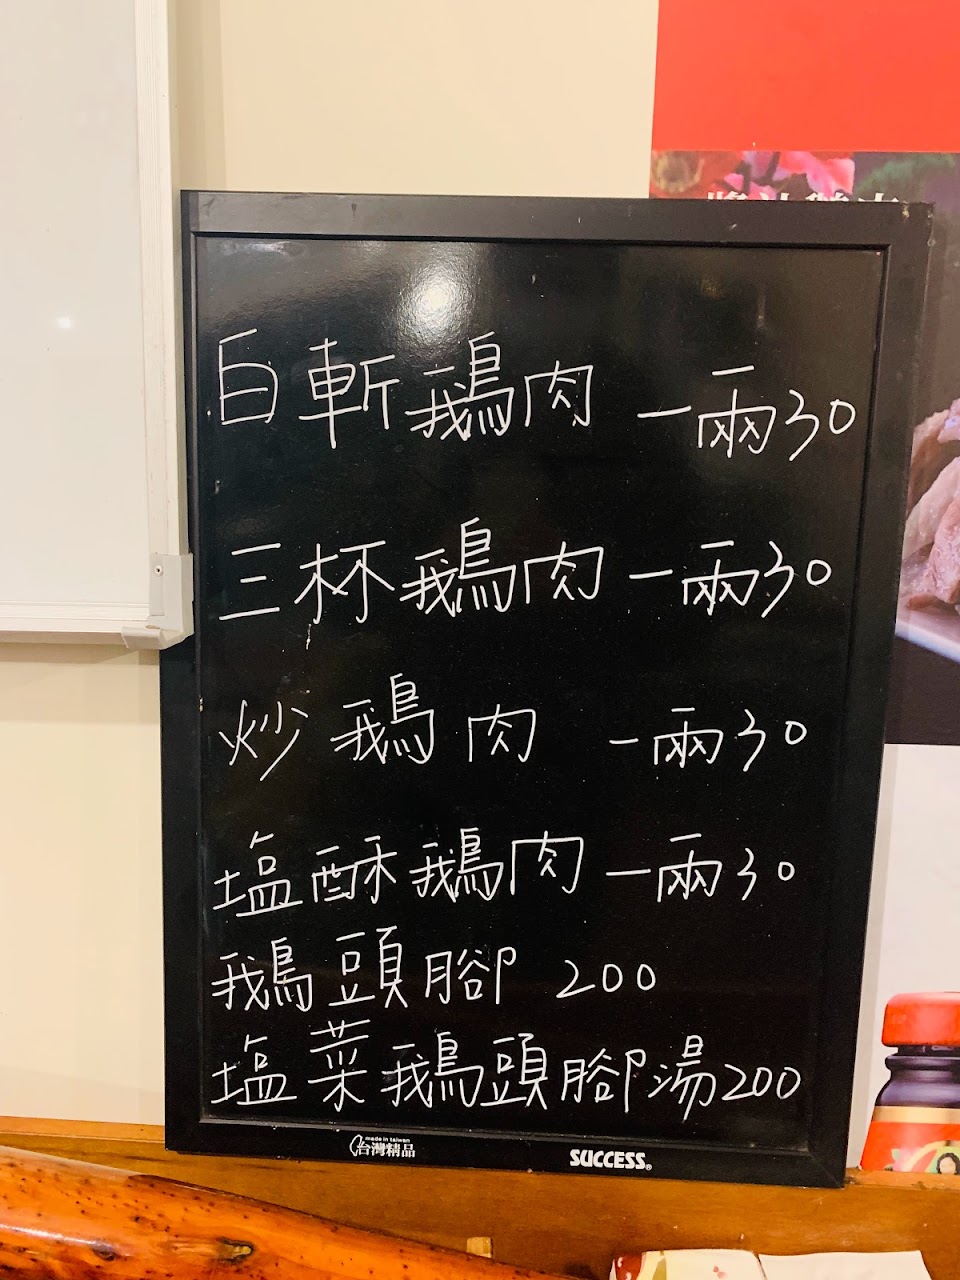 白斬鵝肉 一兩30
三杯鵝肉 一兩30
炒鵝肉 一兩30
塩酥鵝肉 一兩30
鵝頭腳 200
塩菜鵝頭腳湯200
made in taiwan
台灣精品
SUCCESS®